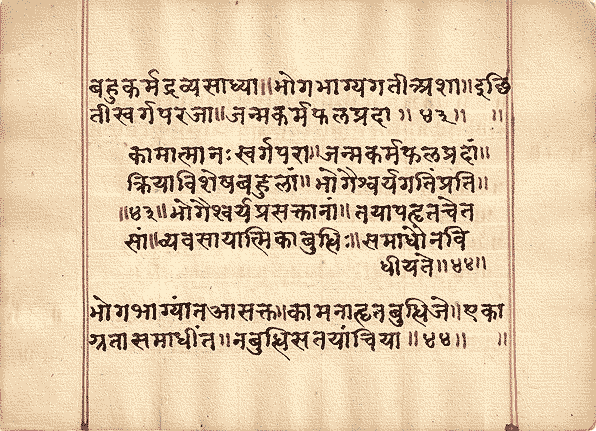 बहुकर्मद्रव्यसाध्या॥भोगभाग्यगतीन्प्रशा॥दृछि
तीस्वर्गपरजा॥जन्मकर्मफलप्रदा॥४३॥ ॥
कामात्मानःस्वर्गपरा॥जन्मकर्मफलप्रदां॥
क्रियाविशेषबहुलां॥भोगैश्वर्यगतिंप्रति॥
॥४३॥भोगैश्वर्यप्रसक्तानां॥तयापहृतचेत
सां॥व्यवसायात्मिकाबुधिः॥समाधौनवि
धीयते॥४४॥
भोगभाग्यांतआसक्त॥कामनाहृतबुधिजे॥एका
ग्रतासमाधींत॥नबुधिसतयांचिया॥४४॥ ॥